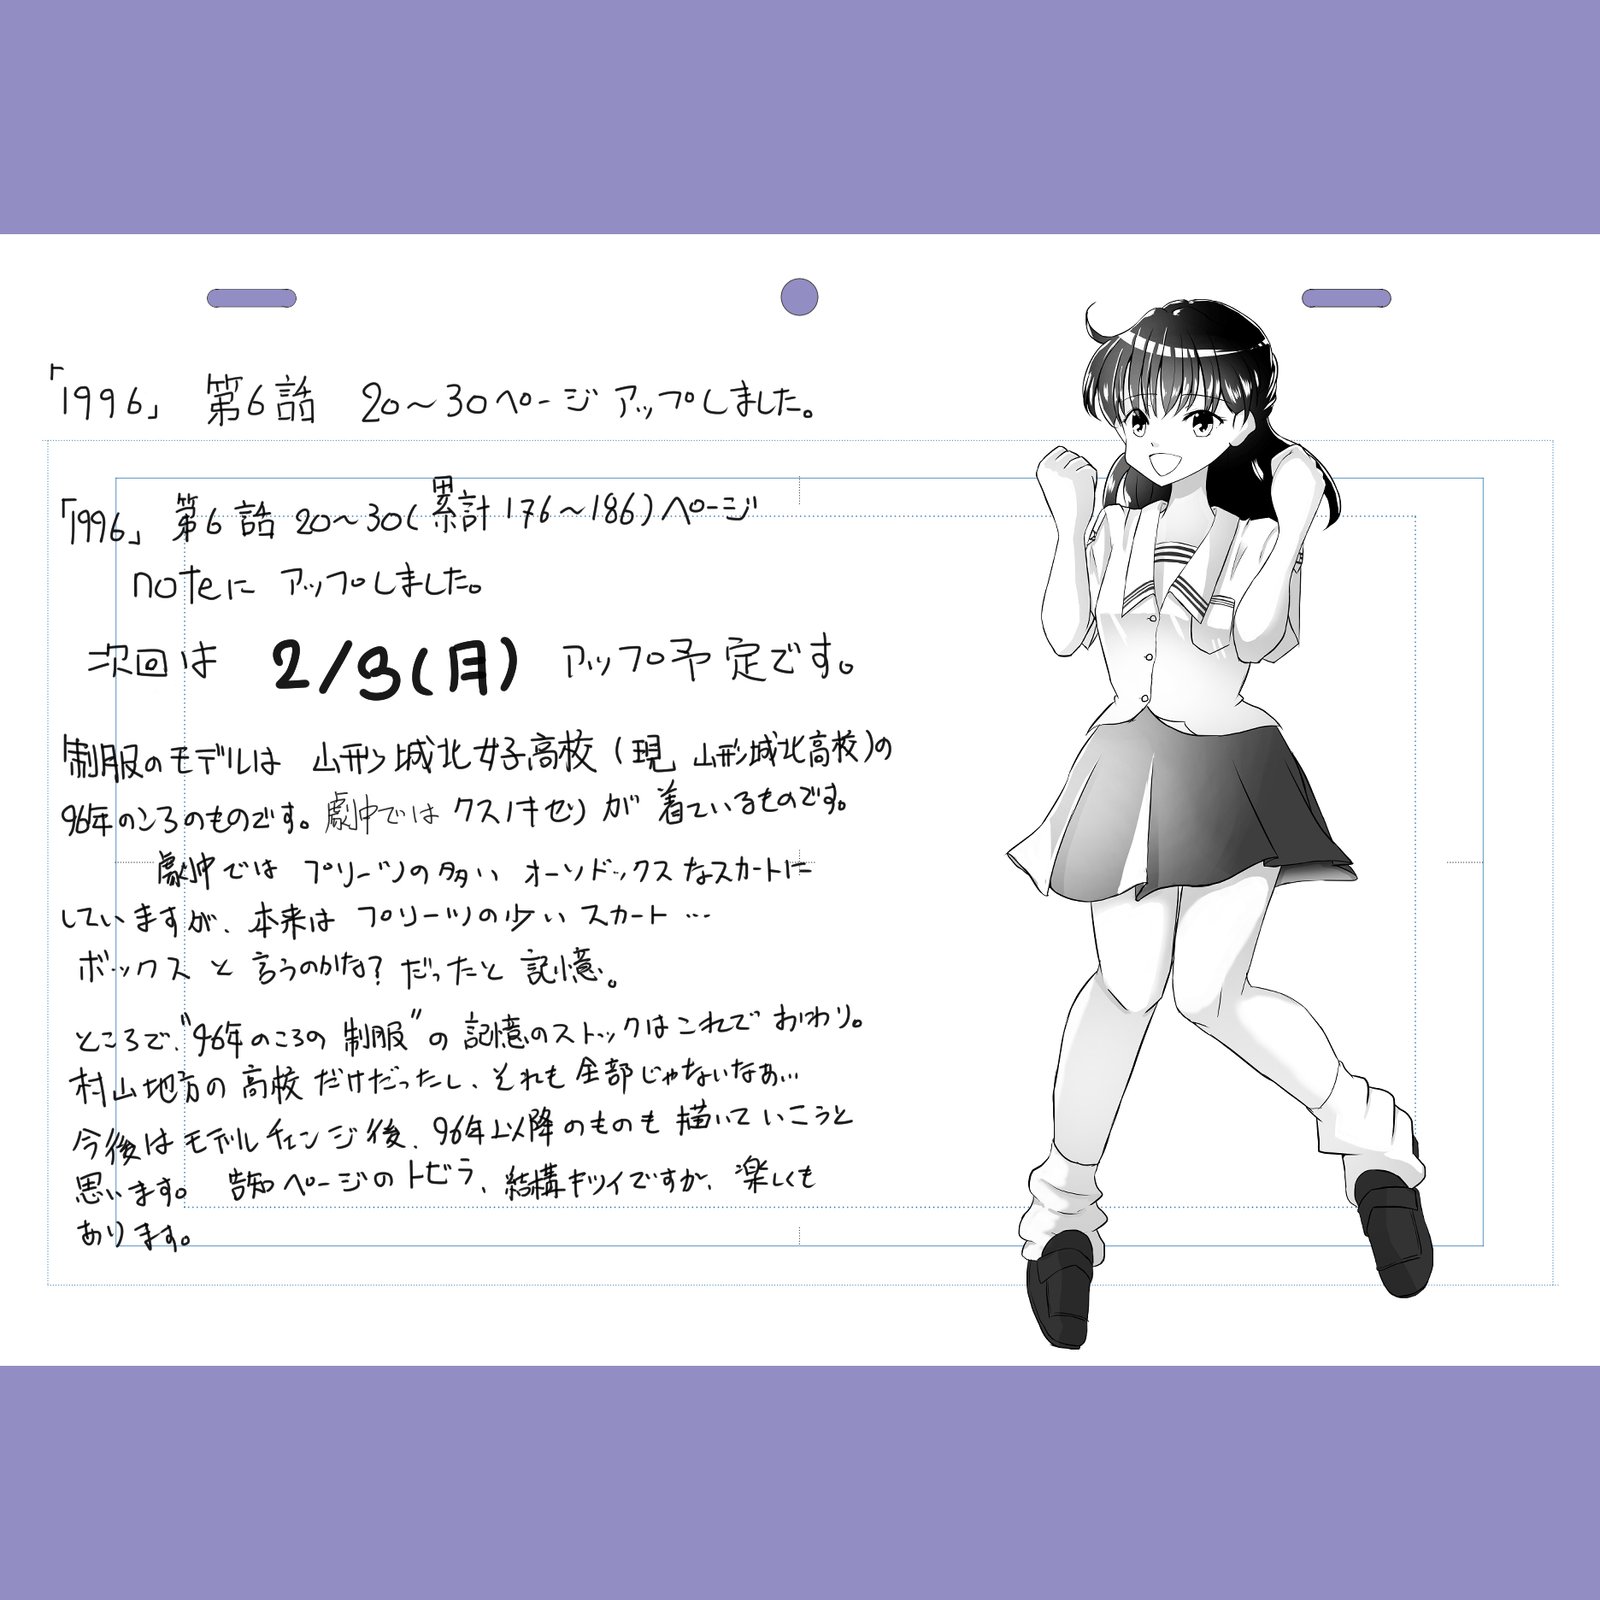 「1996」 第6話 20〜30ページ アップしました。
「1996」 第6話 20〜30(累計176〜186)ページ
noteに アップしました。
次回は 2/3(月) アップ予定です。
制服のモデルは 山形城北女子高校(現 山形城北高校)の
96年のころのものです。劇中では クスノキセリ が 着ているものです。
劇中では プリーツの多い オーソドックスなスカートに
していますが、本来は プリーツの少い スカート…
ボックス と 言うのかな? だったと 記憶。
ところで、"96年のころの 制服"の 記憶のストックはこれで おわり。
村山地方の 高校 だけだったし、それも 全部じゃないなぁ…
今後は モデルチェンジ後、96年以降のものも 描いて いこうと
思います。 告知ページのトビラ、結構キツイですが、楽しくも
あります。